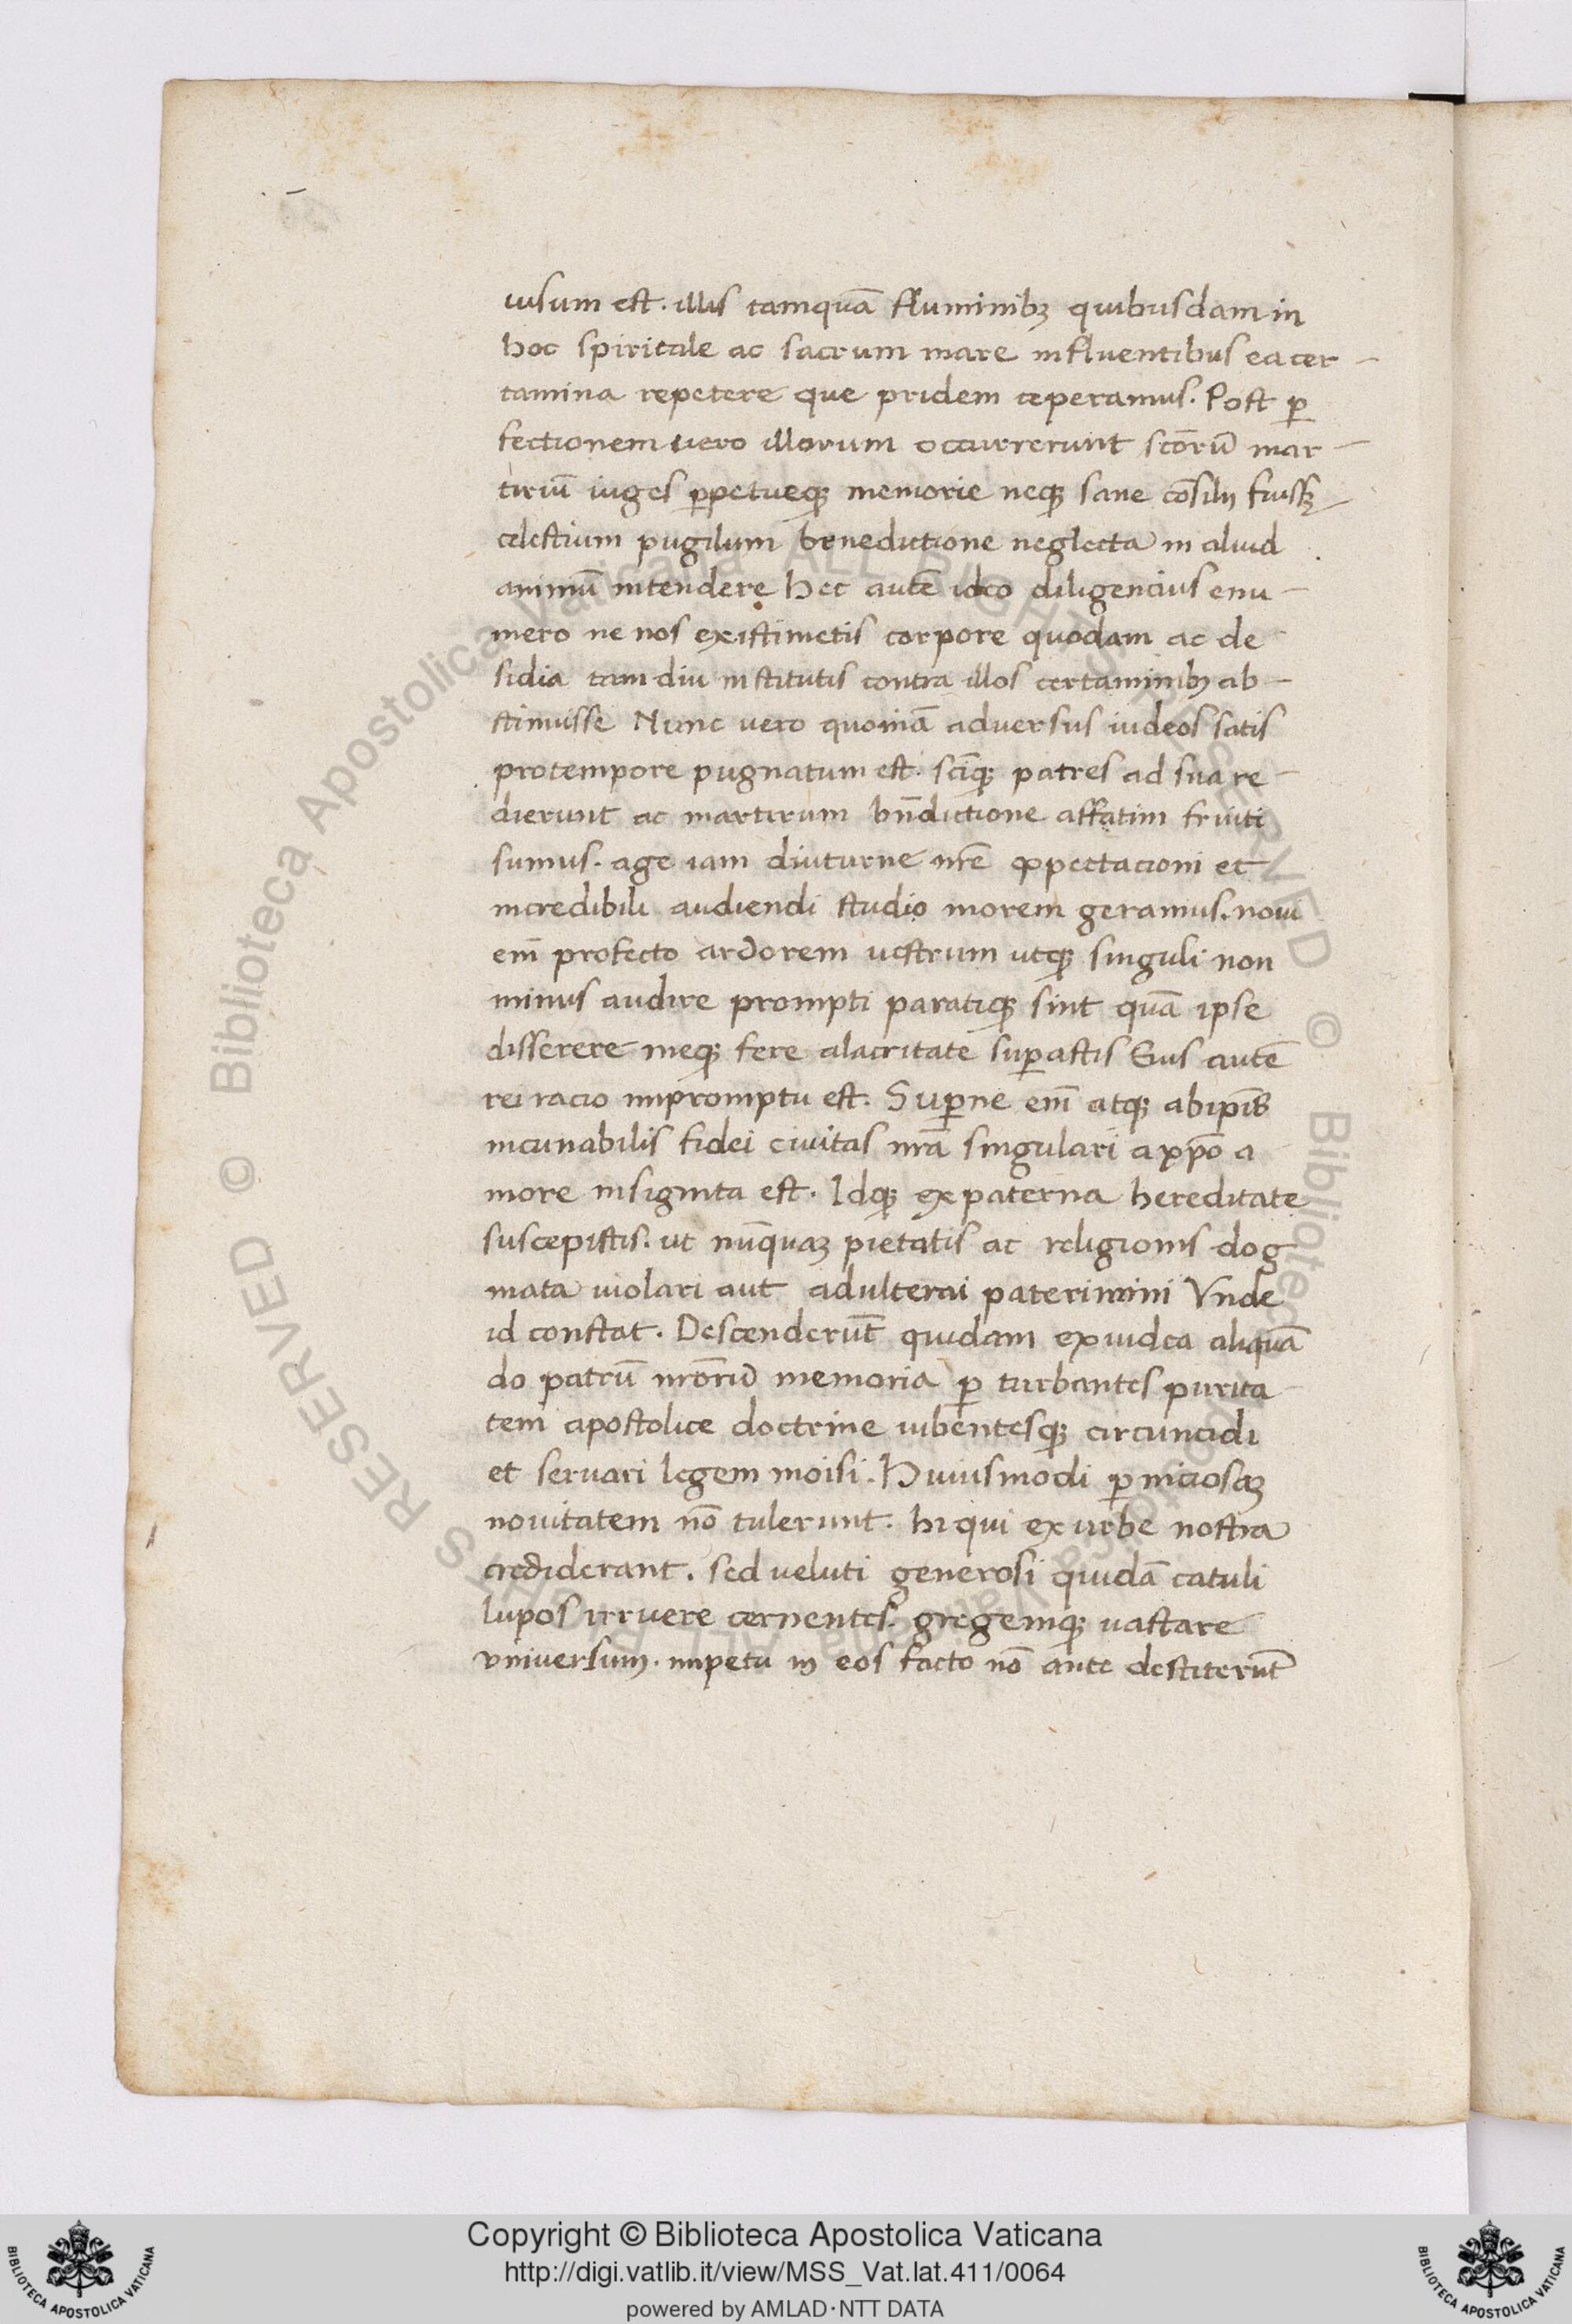 uisum est. illis tamquā fluminibꝫ quibusdam in
hoc spiritale ac sacrum mare influentibus ea cer-
tamina repetere que pridem ceperamus. Post ꝑ
fectionem vero illorum occurrerunt sc̄orū mar-
tiriū iuges ꝑpetueqꝫ memorie neqꝫ sane cōsilij fuissꝫ
celestium pugilum benedictione neglecta in aliud
animū intendere Hec autē ideo diligencius enu-
mero ne nos existimetis corpore quodam ac de
sidia tam diu institutis contra illos certaminibꝫ ab-
stinuisse Nunc vero quoniā adversus iudeos satis
pro tempore pugnatum est. sc̄iqꝫ patres ad sua re-
dierunt ac martirum bn̄dictione affatim fruiti
sumus. age iam diuturne nr̄e exꝑectacioni et
incredibili audiendi studio morem geramus. noui
eni̅ profecto ardorem uestrum utqꝫ singuli non
minus audire prompti paratiqꝫ sint quā ipse
disserere meqꝫ fere alacritate suꝑastis Eius autē
rei racio in promptu est. Suꝑne eni̅ atqꝫ ab ip̄is
incunabilis fidei civitas nr̄a singulari a xp̄o a
more insignita est. Idqꝫ ex paterna hereditate
suscepistis. ut nūquaꝫ pietatis ac religionis dog
mata uiolari aut adulterai paterimini Vnde
id constat. Descenderūt quidam ex iudea aliquā
do patrū nr̄orū memoria ꝑ turbantes purita-
tem apostolice doctrine iubentesqꝫ circuncidi
et servari legem moisi. Huiusmodi ꝑ niciosaꝫ
nouitatem nō tulerunt. hi qui ex urbe nostra
crediderant. sed veluti generosi quidā catuli
lupos irruere cernentes. gregemqꝫ vastare
vniversum. impetu in eos facto nō ante destiterūt
© Biblioteca Apostolica Vaticana ALL RIGHTS RESERVED © Biblioteca Apostolica Vaticana ALL RIGHTS RESERVED
Copyright © Biblioteca Apostolica Vaticana
http://digi.vatlib.it/view/MSS_Vat.lat.411/0064
powered by AMLAD·NTT DATA
BIBLIOTECA APOSTOLICA VATICANA
BIBLIOTECA APOSTOLICA VATICANA